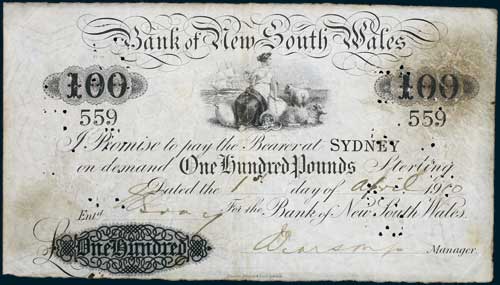 Bank of New South Wales
100 100
559 559
I Promise to pay the Bearer at SYDNEY
on demand One Hundred Pounds Sterling
Dated the 1 day of april 19
Ent.d For the Bank of New South Wales.
£ One Hundred Manager.